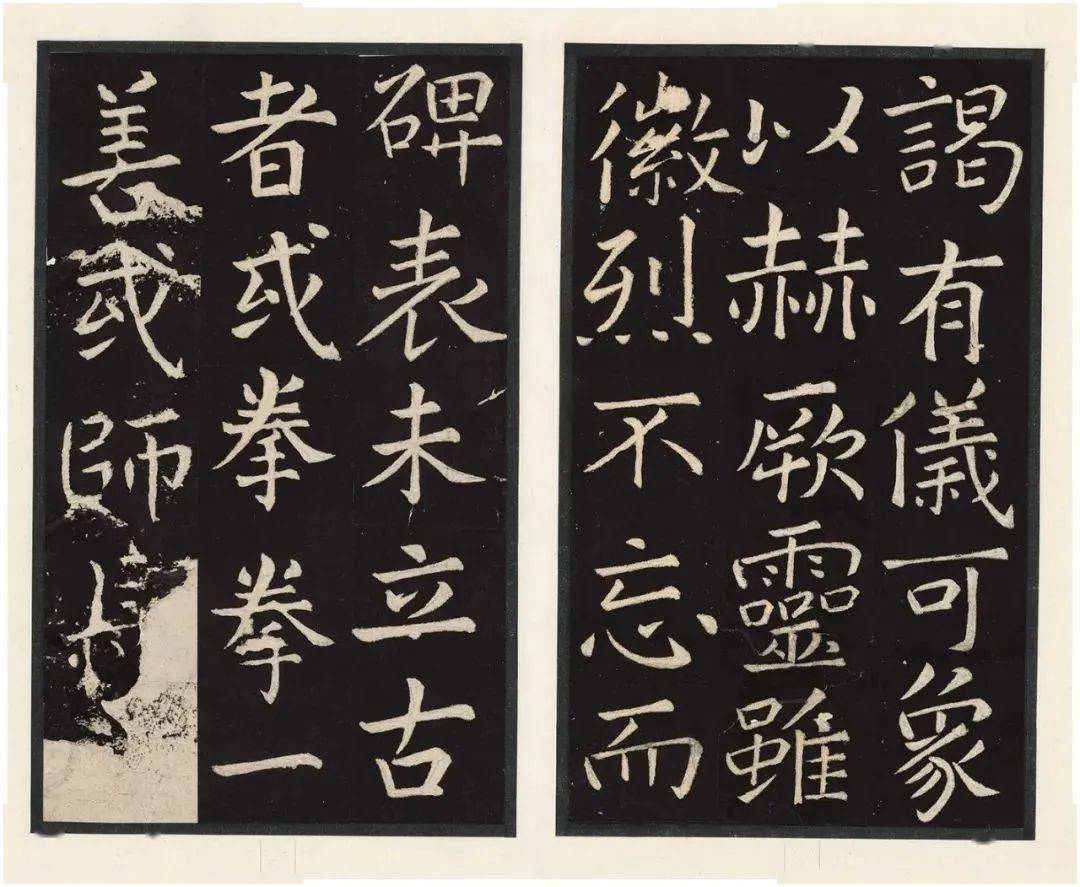 謁有儀可象
以赫厥靈雖
徽烈不忘而
碑表未立古
者或拳拳一
善或師長